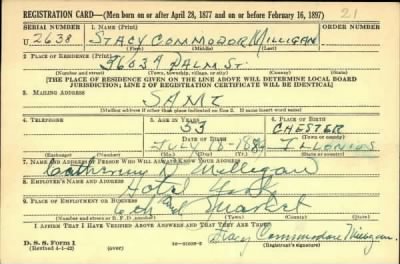 REGISTRATION CARD—(Men born on or after April 28, 1877 and on or before February 16, 1897) 21
SERIAL NUMBER 1. NAME (Print) ORDER NUMBER
U 2638 STACY COMMODOR MILLIGAN
(First) (Middle) (Last)
2. PLACE OF RESIDENCE (Print)
PALM ST.
(Number and street) (Town, township, village, or city) (County) (State)
[THE PLACE OF RESIDENCE GIVEN ON THE LINE ABOVE WILL DETERMINE LOCAL BOARD
JURISDICTION; LINE 2 OF REGISTRATION CERTIFICATE WILL BE IDENTICAL]
3. MAILING ADDRESS
SAME
[Mailing address if other than place indicated on line 2. If same insert word same]
4. TELEPHONE 5. AGE IN YEARS 6. PLACE OF BIRTH
53 CHESTER
DATE OF BIRTH (Town or county)
JULY 18-1889 ILLONIOS
(Exchange) (Number) (Mo.) (Day) (Yr.) (State or country)
7. NAME AND ADDRESS OF PERSON WHO WILL ALWAYS KNOW YOUR ADDRESS
Milligan
8. EMPLOYER'S NAME AND ADDRESS
Hotel
9. PLACE OF EMPLOYMENT OR BUSINESS
and Market
(Number and street or R. F. D. number) (Town) (County) (State)
I AFFIRM THAT I HAVE VERIFIED ABOVE ANSWERS AND THAT THEY ARE TRUE.
D. S. S. Form 1
(Revised 4-1-42) (over) Stacy Commodore Milligan
(Registrant's signature)